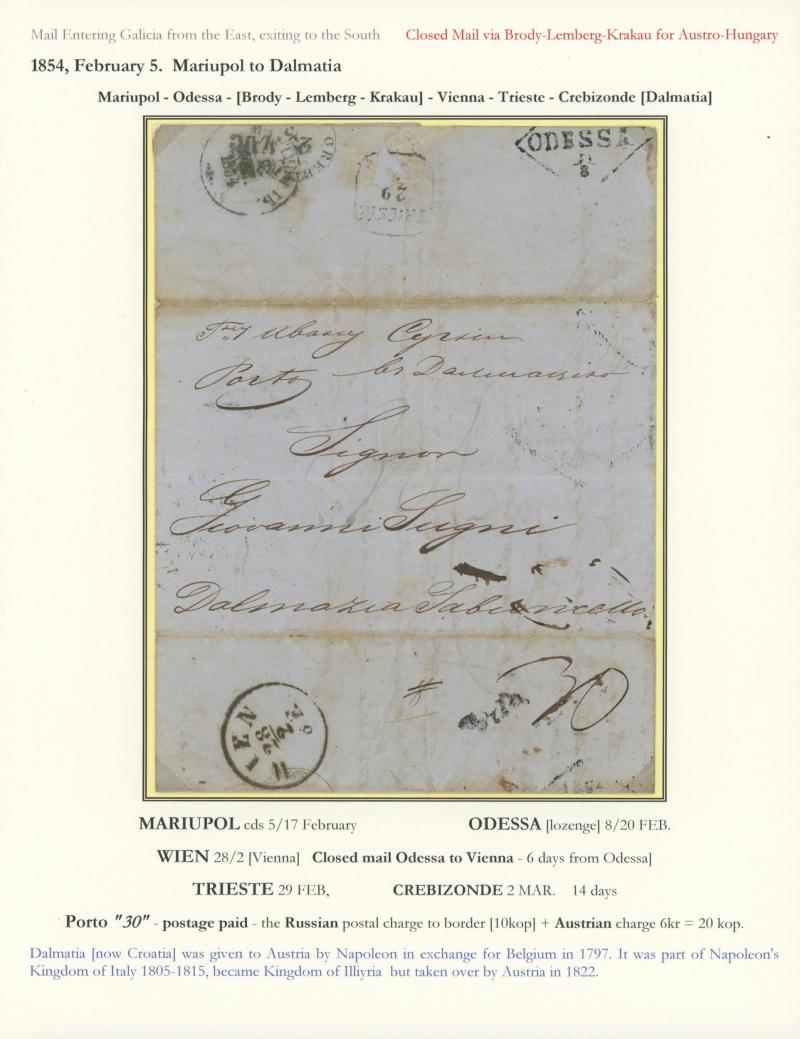 Mail Entering Galicia from the East, exiting to the South Closed Mail via Brody-Lemberg-Krakau for Austro-Hungary
1854, February 5. Mariupol to Dalmatia
Mariupol - Odessa - [Brody - Lemberg - Krakau] - Vienna - Trieste - Crebizonde [Dalmatia]
ODESSA
8
TRIESTE
29
Porto
Signor
Giovanni Sugni
Dalmazia
WIEN
28/2
30
MARIUPOL cds 5/17 February ODESSA [lozenge] 8/20 FEB.
WIEN 28/2 [Vienna] Closed mail Odessa to Vienna - 6 days from Odessa]
TRIESTE 29 FEB, CREBIZONDE 2 MAR. 14 days
Porto "30" - postage paid - the Russian postal charge to border [10kop] + Austrian charge 6kr = 20 kop.
Dalmatia [now Croatia] was given to Austria by Napoleon in exchange for Belgium in 1797. It was part of Napoleon's
Kingdom of Italy 1805-1815, became Kingdom of Illiyria but taken over by Austria in 1822.